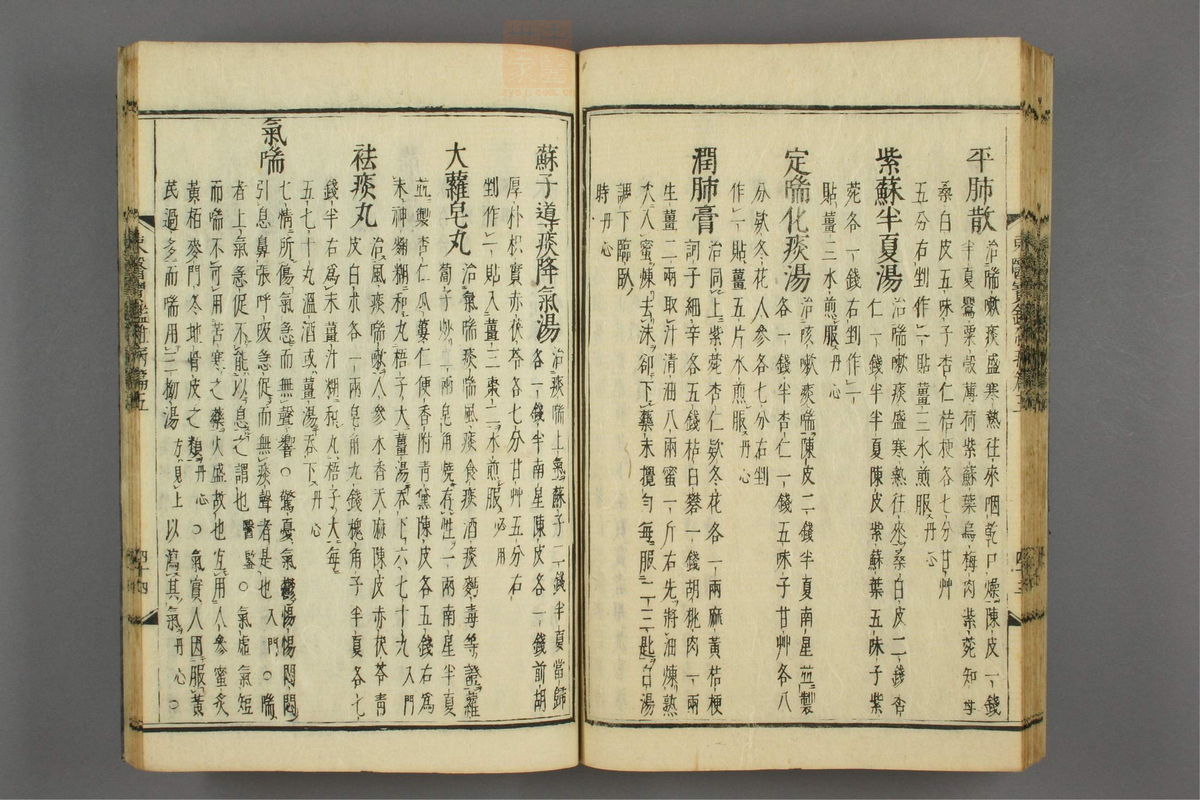 平肺散 治喘嗽痰盛寒熱往來咽乾口燥陳皮一錢
半夏罌粟殼薄荷紫蘇葉烏梅肉紫菀知母
桑白皮五味子杏仁桔梗各七分甘艸
五分右剉作一貼薑三水煎服丹心
紫蘇半夏湯 治喘嗽痰盛寒熱往來桑白皮二錢杏
仁一錢半半夏陳皮紫蘇葉五味子紫
菀各一錢右剉作一
貼薑三水煎服丹心
定喘化痰湯 治咳嗽痰喘陳皮二錢半夏南星並製
各一錢半杏仁一錢五味子甘艸各八
分欵冬花人參各七分右剉
作一貼薑五片水煎服丹心
潤肺膏 治同上紫菀杏仁欵冬花各一兩麻黃桔梗
訶子細辛各五錢枯白礬一錢胡桃肉一兩
生薑二兩取汁清油八兩蜜一斤右先將油煉熟
次入蜜煉去沫卻下藥末攪勻每服二三匙白湯
調下臨臥
時丹心
蘇子導痰降氣湯 治痰喘上氣蘇子二錢半夏當歸
各一錢半南星陳皮各一錢前胡
厚朴枳實赤茯苓各七分甘艸五分右
剉作一貼入薑三棗二水煎服必用
大蘿皂丸 治氣喘痰喘風痰食痰酒痰麪毒等證蘿
蔔子炒二兩皂角燒存性一兩南星半夏
並製杏仁瓜蔞仁便香附靑黛陳皮各五錢右爲
末神麴糊和丸梧子大薑湯呑下六七十丸入門
祛痰丸 治風痰喘嗽人參木香天麻陳皮赤茯苓靑
皮白朮各一兩皂角九錢槐角子半夏各七
錢半右爲末薑汁糊和丸梧子大每
五七十丸溫酒或薑湯呑下丹心
氣喘
七情所傷氣急而無聲響〇驚憂氣鬱惕惕悶悶
引息鼻張呼吸急促而無痰聲者是也入門〇喘
者上氣急促不能以息之謂也醫鑑〇氣虛氣短
而喘不可用苦寒之藥火盛故也宜用人參蜜炙
黃栢麥門冬地骨皮之類丹心〇氣實人因服黃
芪過多而喘用三拗湯方見上以瀉其氣丹心〇